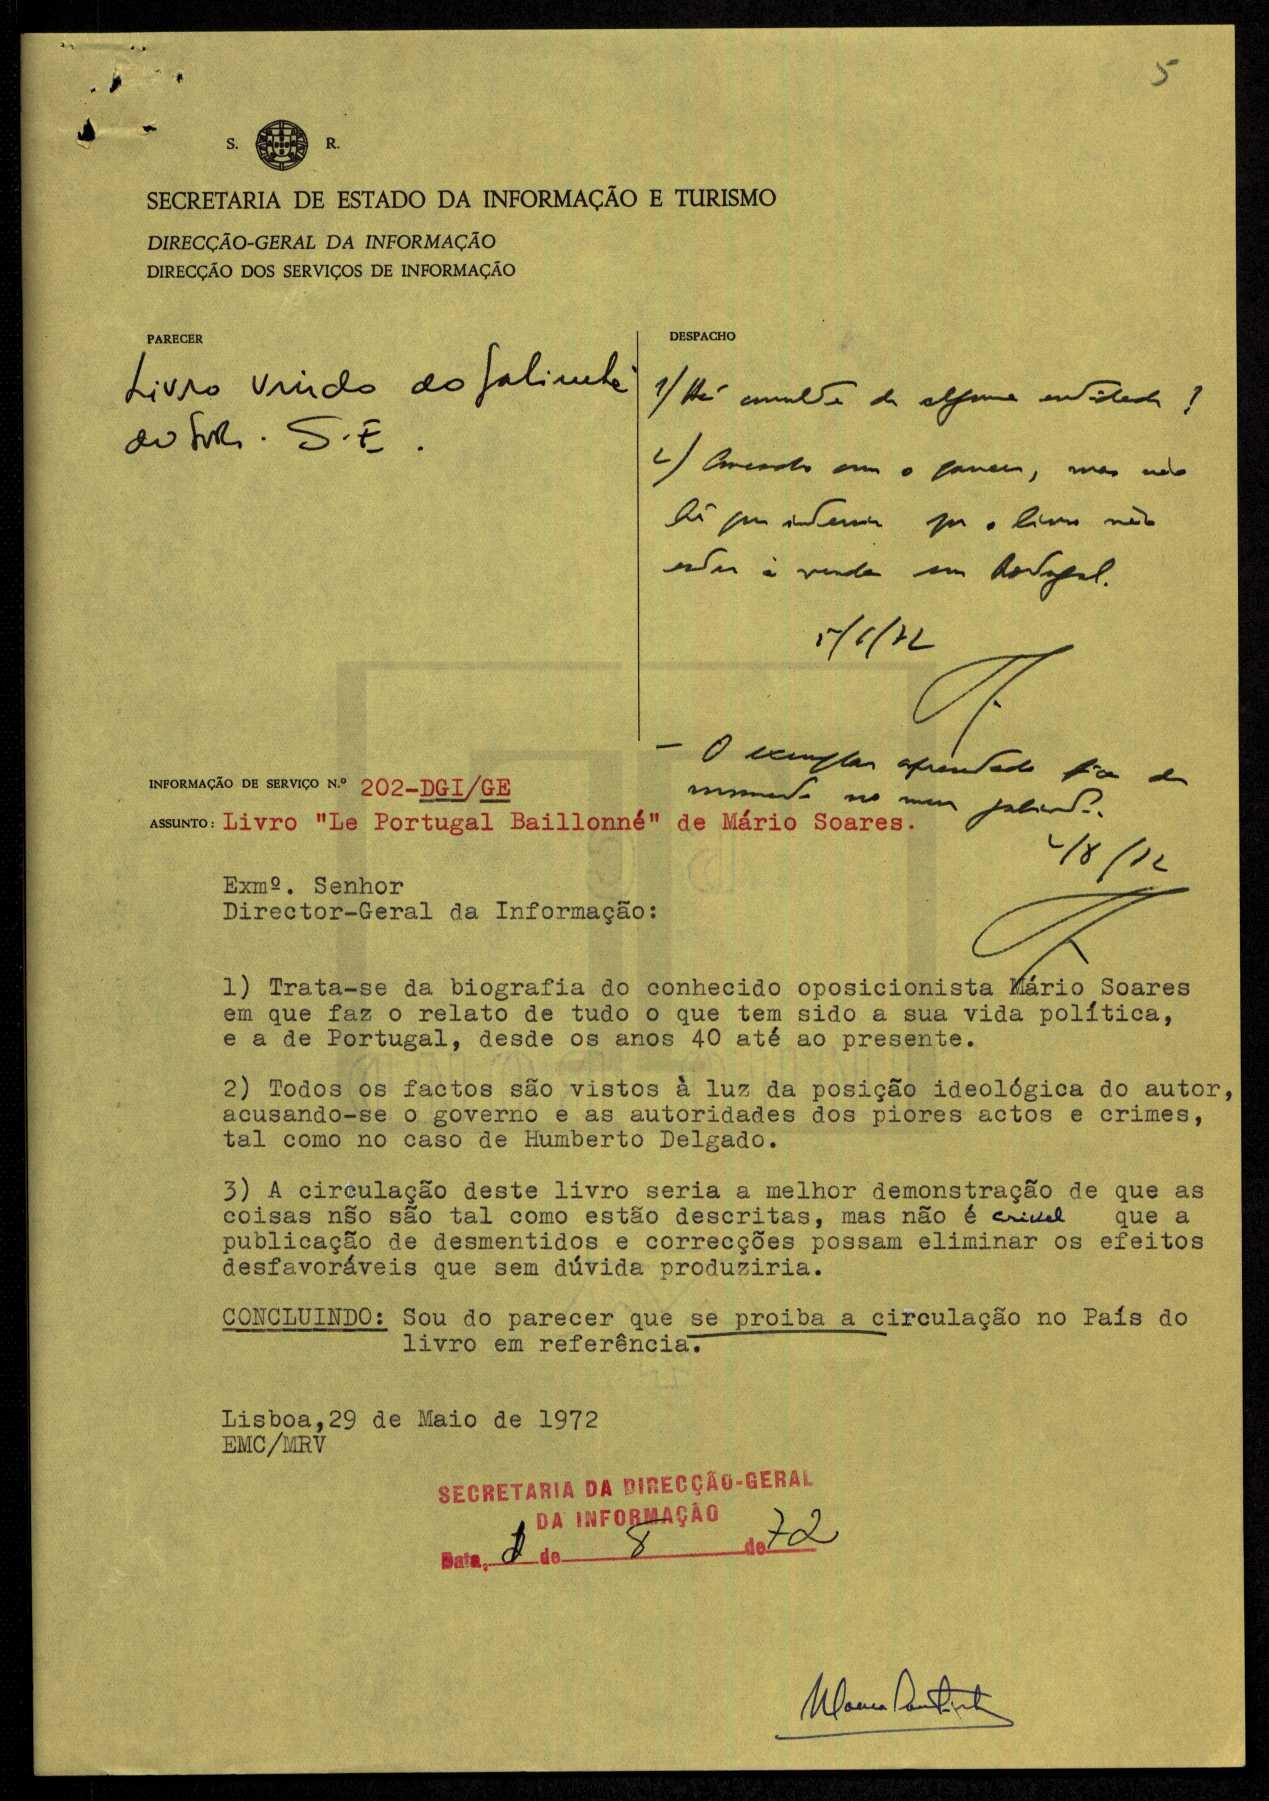 5
S. R.
SECRETARIA DE ESTADO DA INFORMAÇÃO E TURISMO
DIRECÇÃO-GERAL DA INFORMAÇÃO
DIRECÇÃO DOS SERVIÇOS DE INFORMAÇÃO
PARECER
Livro vindo do
S.E.
DESPACHO
1/ Há consulta de alguma entidade?
2/ Concordo com o parecer, mas não
há que informar que o livro não
está à venda em Portugal.
5/6/72
- O exemplar apreendido fica de
momento no meu gabinete.
2/8/72
INFORMAÇÃO DE SERVIÇO N.º 202-DGI/GE
ASSUNTO: Livro "Le Portugal Baillonné" de Mário Soares.
Exmº. Senhor
Director-Geral da Informação:
1) Trata-se da biografia do conhecido oposicionista Mário Soares
em que faz o relato de tudo o que tem sido a sua vida política,
e a de Portugal, desde os anos 40 até ao presente.
2) Todos os factos são vistos à luz da posição ideológica do autor,
acusando-se o governo e as autoridades dos piores actos e crimes,
tal como no caso de Humberto Delgado.
3) A circulação deste livro seria a melhor demonstração de que as
coisas não são tal como estão descritas, mas não é crivel que a
publicação de desmentidos e correcções possam eliminar os efeitos
desfavoráveis que sem dúvida produziria.
CONCLUINDO: Sou do parecer que se proiba a circulação no País do
livro em referência.
Lisboa,29 de Maio de 1972
EMC/MRV
SECRETARIA DA DIRECÇÃO-GERAL
DA INFORMAÇÃO
Data, 1 de 8 de 72